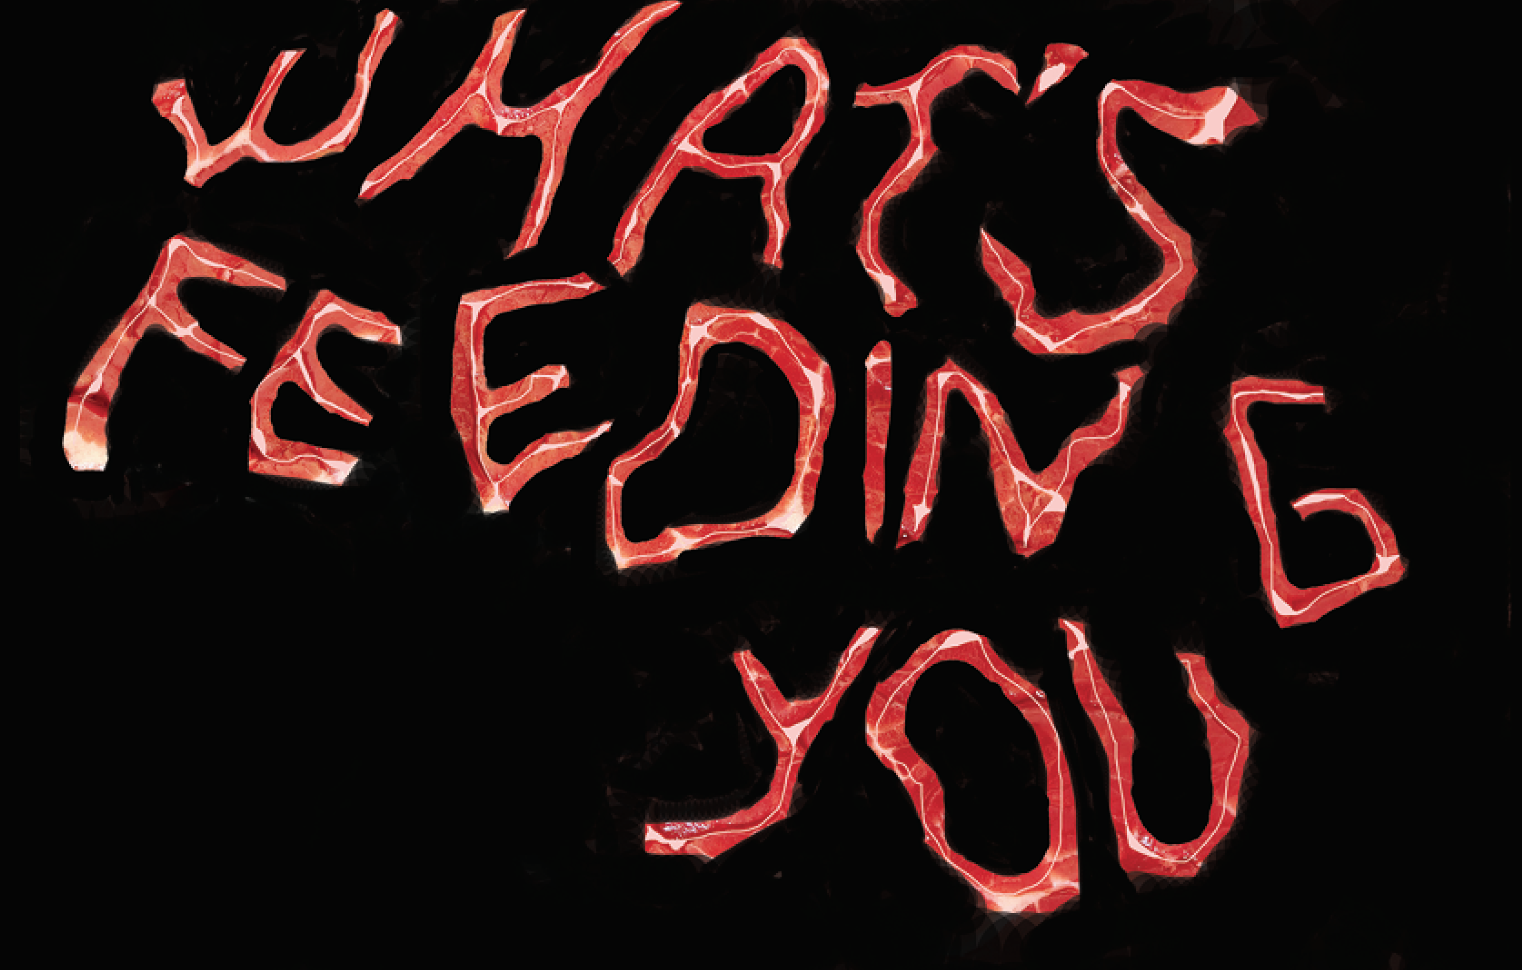 WHAT'S
FEEDING
YOU